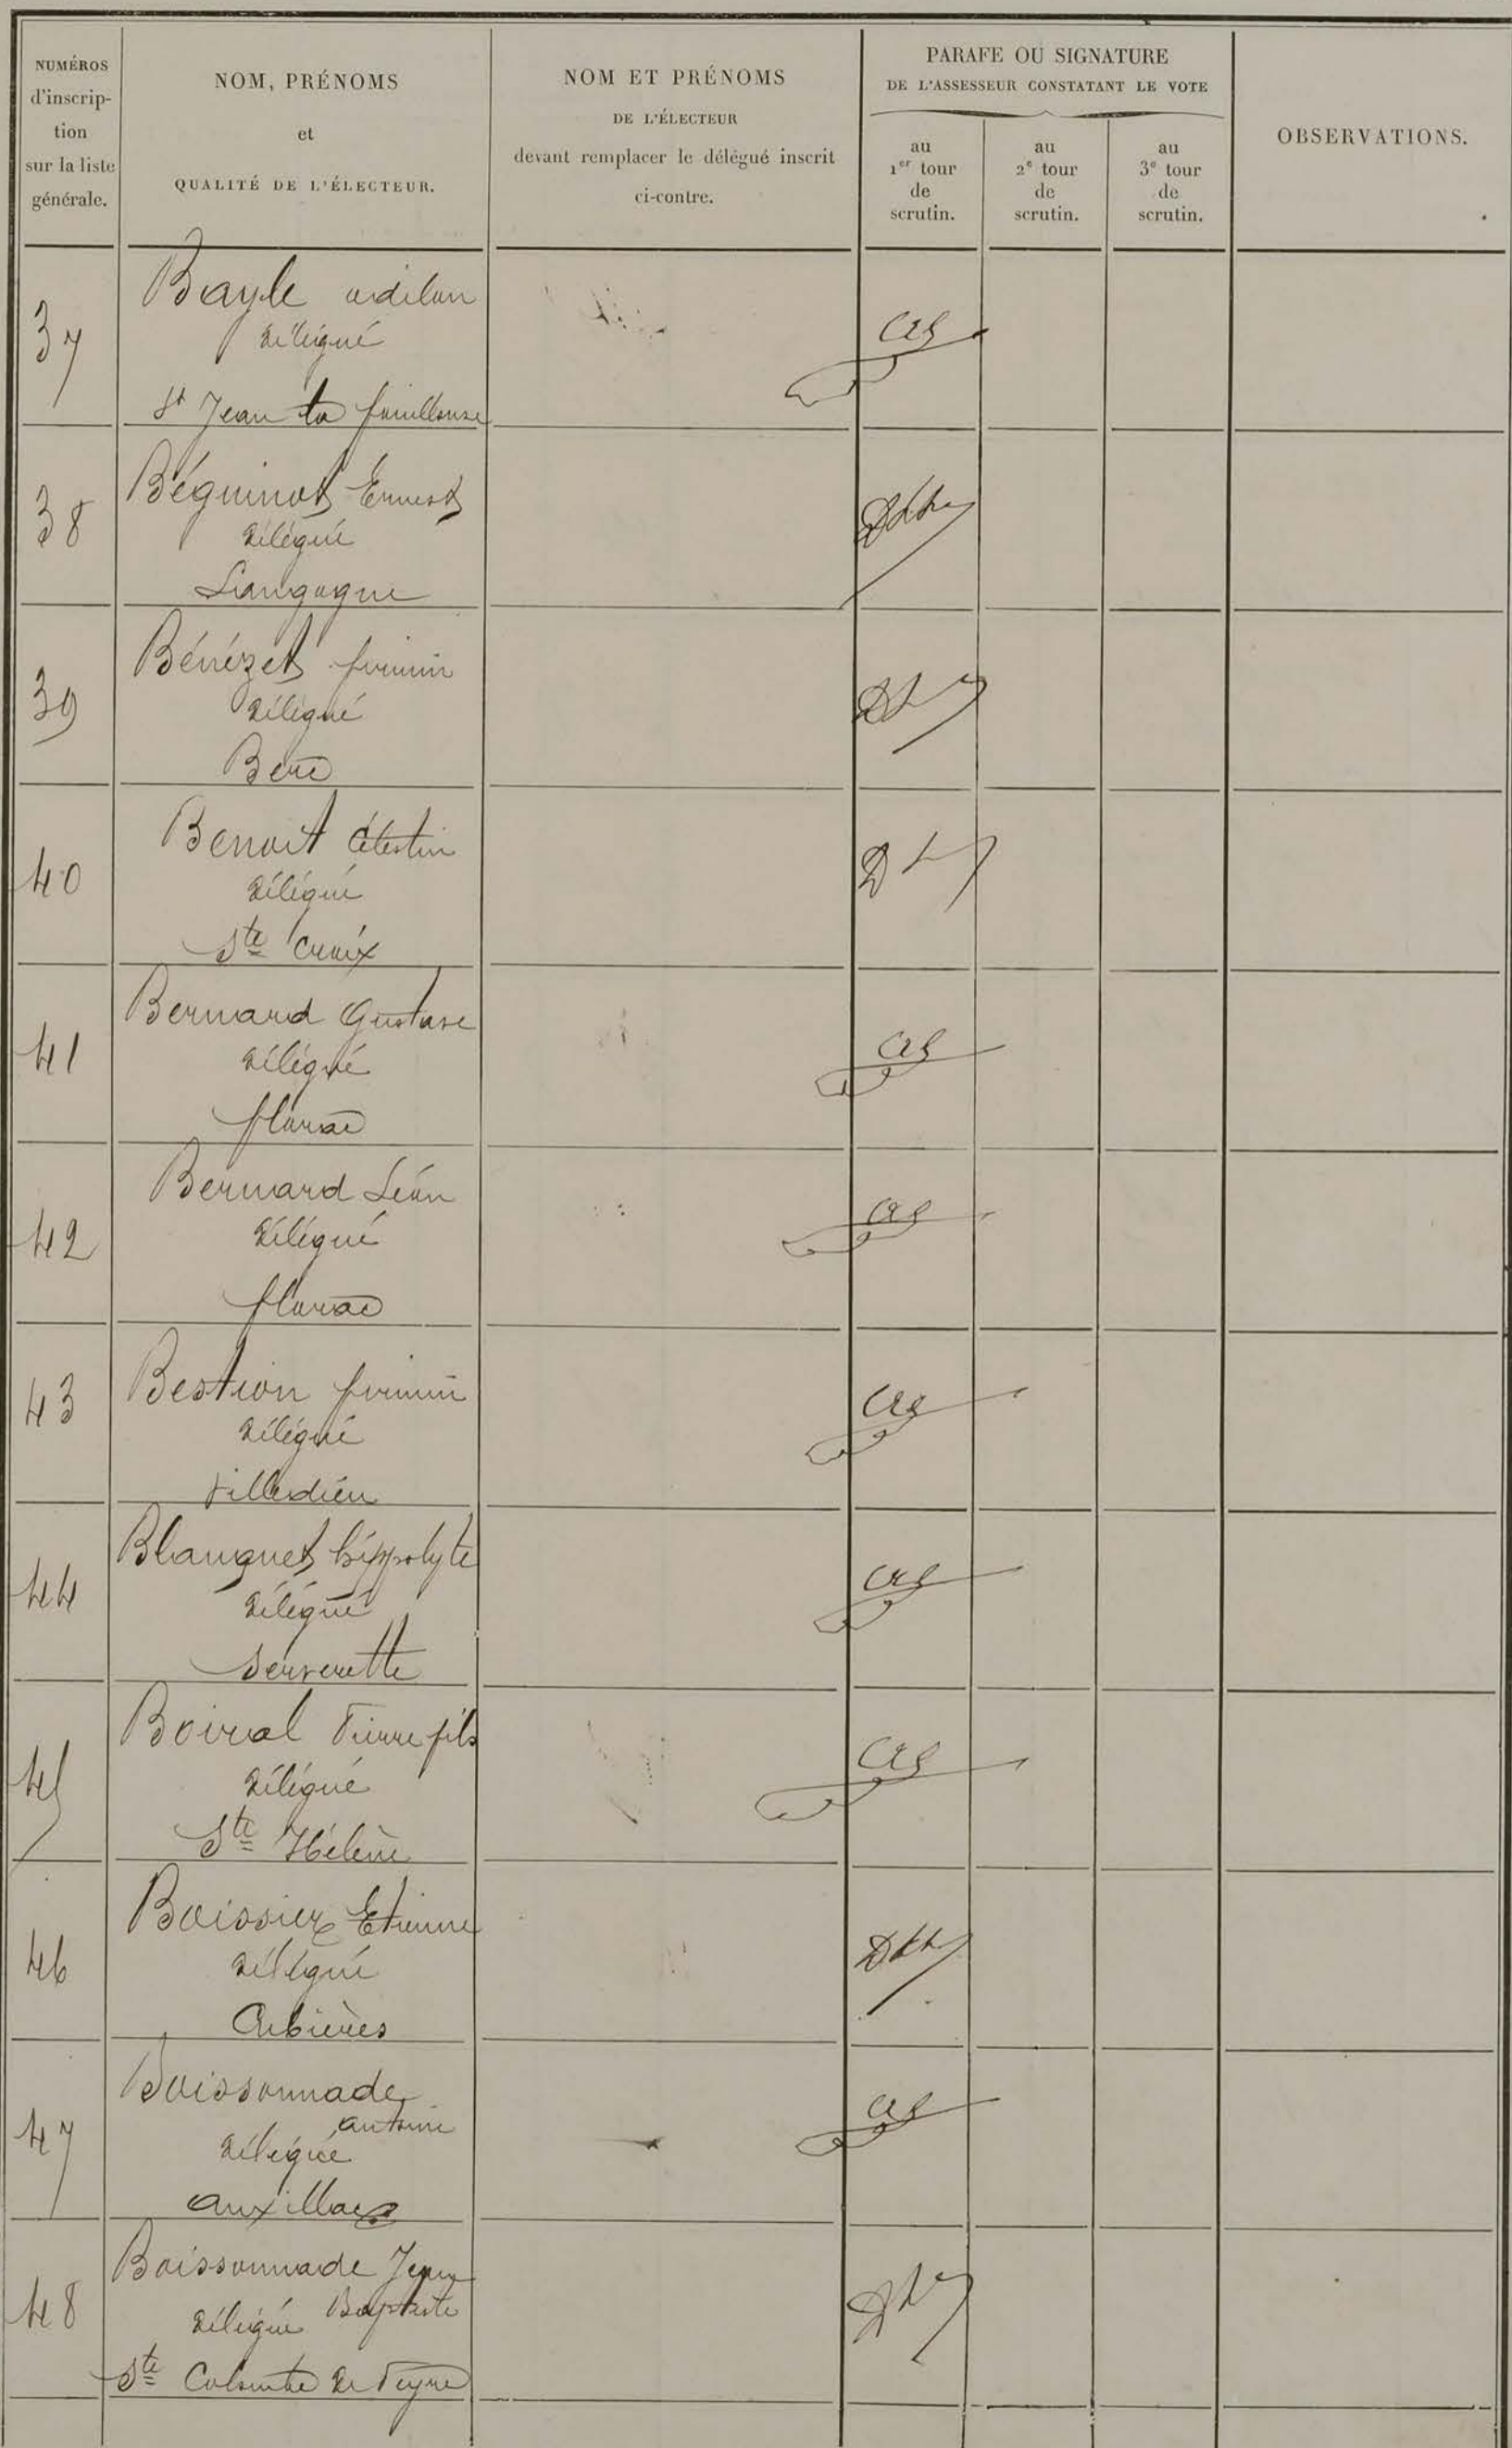 NUMÉROS
d'inscrip-
tion
sur la liste
générale.
NOM, PRÉNOMS
et
QUALITÉ DE L'ÉLECTEUR.
NOM ET PRÉNOMS
DE L'ÉLECTEUR
devant remplacer le délégué inscrit
ci-contre.
PARAFE OU SIGNATURE
DE L'ASSESSEUR CONSTATANT LE VOTE
au
1er tour
de
scrutin.
au
2e tour
de
scrutin.
au
3e tour
de
scrutin.
OBSERVATIONS.
37
Bayle odilon
délégué
St Jean la fouillouse
38
Béguinot Ernest
délégué
Langogne
39
Bénézet firmin
délégué
40
Benoit Célestin
délégué
Ste Croix
41
Bernard Gustave
délégué
florac
42
Bernard Léon
délégué
florac
43
Bestion firmin
délégué
villedieu
44
Blanquet hippolyte
délégué
Serverette
45
Boiral Pierre fils
délégué
Ste Hélène
46
Boissier Etienne
délégué
Cubières
47
Boissonnade
antoine
délégué
auxillac
48
Boissonnade Jean
Baptiste
délégué
Ste Colombe de Peyre